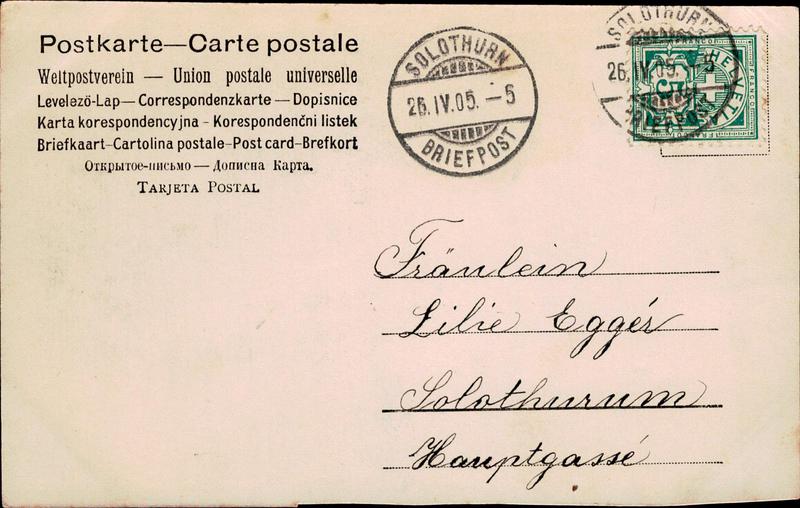 Postkarte—Carte postale
Weltpostverein — Union postale universelle
Levelezö-Lap—Correspondenzkarte—Dopisnice
Karta korespondencyjna - Korespondenční listek
Briefkaart-Cartolina postale-Post card-Brefkort
Открытое-письмо — Дописна Карта.
TARJETA POSTAL
SOLOTHURN
26.IV.05. – 5
BRIEFPOST
SOLOTHURN
26.IV.05. 5
BRIEFPOST
FRANCO
HELVETIA
FRANCO
Fräulein
Lilie Eggér
Solothurum
Hauptgassé